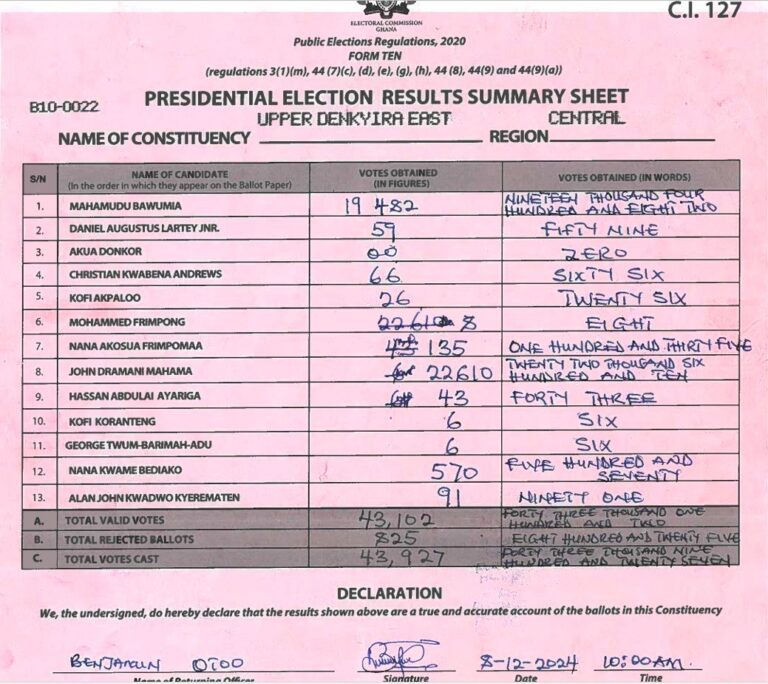 C.I. 127
ELECTORAL COMMISSION
GHANA
Public Elections Regulations, 2020
FORM TEN
(regulations 3(1)(m), 44 (7)(c), (d), (e), (g), (h), 44 (8), 44(9) and 44(9)(a))
B10-0022
PRESIDENTIAL ELECTION RESULTS SUMMARY SHEET
UPPER DENKYIRA EAST CENTRAL
NAME OF CONSTITUENCY REGION
S/N NAME OF CANDIDATE (In the order in which they appear on the Ballot Paper) VOTES OBTAINED (IN FIGURES) VOTES OBTAINED (IN WORDS)
1. MAHAMUDU BAWUMIA 19 482 NINETEEN THOUSAND FOUR HUNDRED AND EIGHT TWO
2. DANIEL AUGUSTUS LARTEY JNR. 59 FIFTY NINE
3. AKUA DONKOR 00 ZERO
4. CHRISTIAN KWABENA ANDREWS 66 SIXTY SIX
5. KOFI AKPALOO 26 TWENTY SIX
6. MOHAMMED FRIMPONG 22610 8 EIGHT
7. NANA AKOSUA FRIMPOMAA 43 135 ONE HUNDRED AND THIRTY FIVE
8. JOHN DRAMANI MAHAMA 22610 TWENTY TWO THOUSAND SIX HUNDRED AND TEN
9. HASSAN ABDULAI AYARIGA 43 FORTY THREE
10. KOFI KORANTENG 6 SIX
11. GEORGE TWUM-BARIMAH-ADU 6 SIX
12. NANA KWAME BEDIAKO 570 FIVE HUNDRED AND SEVENTY
13. ALAN JOHN KWADWO KYEREMATEN 91 NINETY ONE
A. TOTAL VALID VOTES 43,102 FORTY THREE THOUSAND ONE HUNDRED AND TWO
B. TOTAL REJECTED BALLOTS 825 EIGHT HUNDRED AND TWENTY FIVE
C. TOTAL VOTES CAST 43,927 FORTY THREE THOUSAND NINE HUNDRED AND TWENTY SEVEN
DECLARATION
We, the undersigned, do hereby declare that the results shown above are a true and accurate account of the ballots in this Constituency
BENJAMIN OTOO 8-12-2024 10:00AM.
Name of Returning Officer Signature Date Time